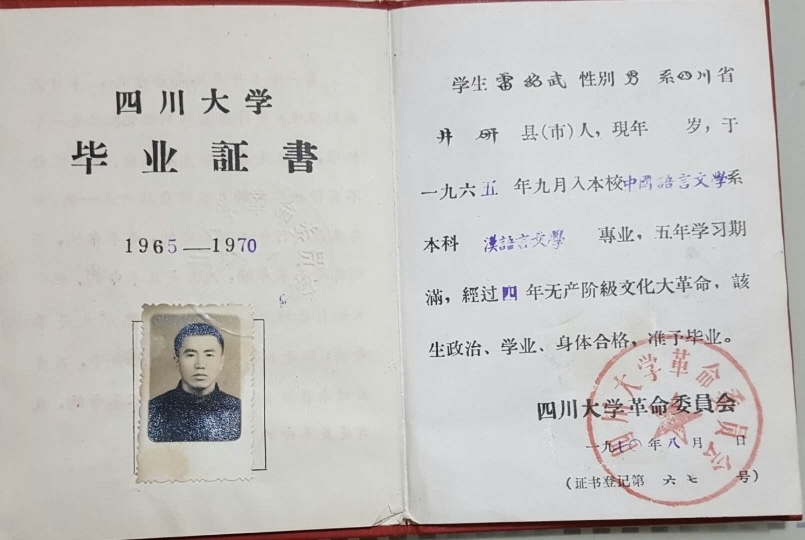 四川大学
毕业証書
1965—1970
学生 雷紹武 性别 男 系四川省
井研 县(市)人，現年 岁，于
一九六五 年九月入本校中國語言文學系
本科 漢語言文學 專业，五年学习期
滿，經过四年无产阶級文化大革命，該
生政治、学业、身体合格，准予毕业。
四川大学革命委員会
一九七〇年八月 日
(证书登记第 六七 号)
四川大学革命委员会